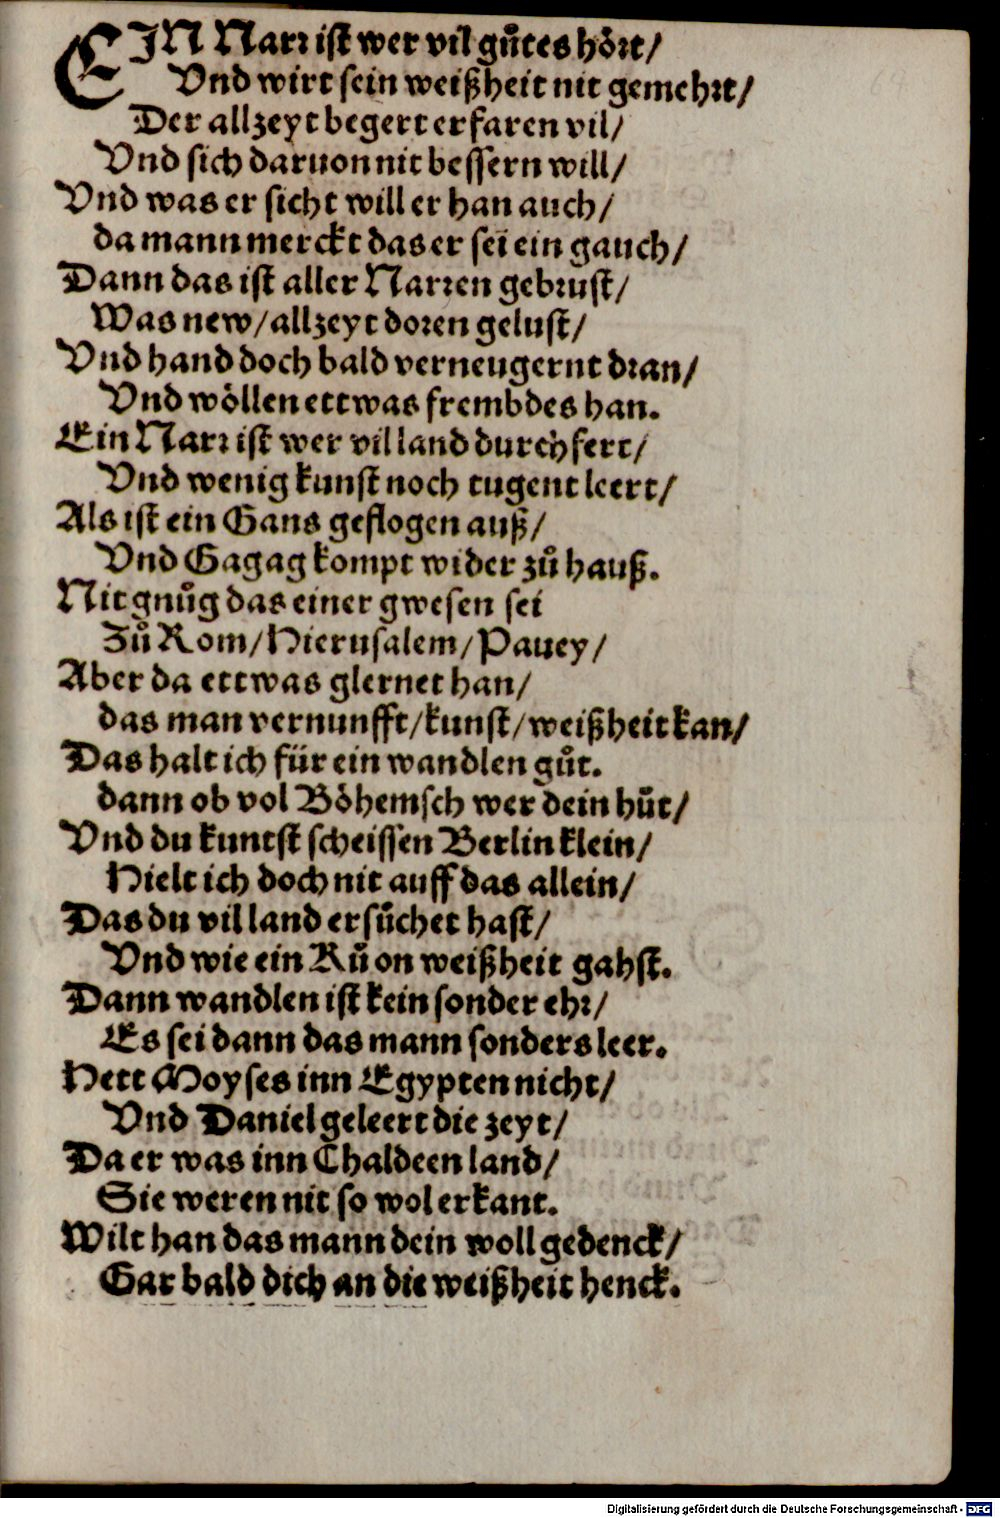 EIN Narr ist wer vil gůtes hört/
Vnd wirt sein weißheit nit gemehrt/
Der allzeyt begert erfaren vil/
Vnd sich daruon nit bessern will/
Vnd was er sicht will er han auch/
da mann merckt das er sei ein gauch/
Dann das ist aller Narren gebrust/
Was new/allzeyt doren gelust/
Vnd hand doch bald verneugernt dran/
Vnd wöllen ettwas frembdes han.
Ein Narr ist wer vil land durchfert/
Vnd wenig kunst noch tugent leert/
Als ist ein Gans geflogen auß/
Vnd Gagag kompt wider zů hauß.
Nit gnůg das einer gwesen sei
Zů Rom/Hierusalem/Pauey/
Aber da ettwas glernet han/
das man vernunfft/kunst/weißheit kan/
Das halt ich für ein wandlen gůt.
dann ob vol Böhemsch wer dein hůt/
Vnd du kuntst scheissen Berlin klein/
Hielt ich doch nit auff das allein/
Das du vil land ersůchet hast/
Vnd wie ein Ků on weißheit gahst.
Dann wandlen ist kein sonder ehr/
Es sei dann das mann sonders leer.
Hett Moyses inn Egypten nicht/
Vnd Daniel geleert die zeyt/
Da er was inn Chaldeen land/
Sie weren nit so wol erkant.
Wilt han das mann dein woll gedenck/
Gar bald dich an die weißheit henck.
Digitalisierung gefördert durch die Deutsche Forschungsgemeinschaft - DFG